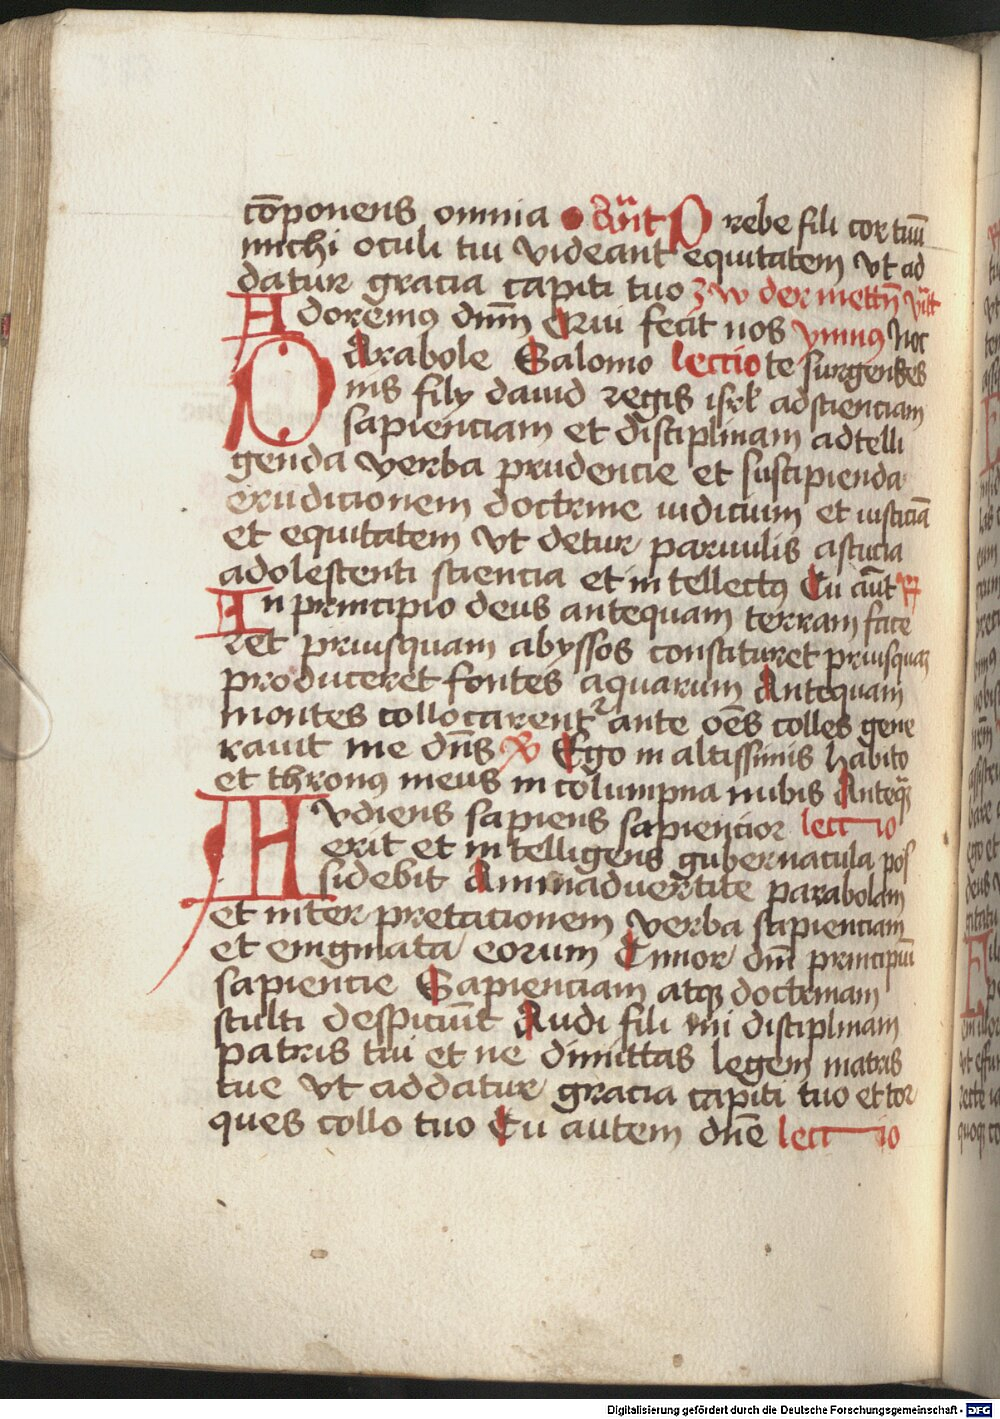 cōponens omnia añt Prebe fili cor tuū
michi oculi tui videant equitatem vt ad
datur gracia capiti tuo zw der mettn̄
Adoremus dn̄m Qui fecit nos ymnus Noc
Parabole Salomo lectio te surgentes
nis filÿ dauid regis isrl ad scienciam
sapienciam et disciplinam adtelli
genda verba prudencie et suscipienda
erudicionem doctrine iudicium et iusticiā
et equitatem vt detur paruulis astucia
adolescenti sciencia et in tellectus Tu aūt
In principio deus antequam terram face
ret priusquam abyssos constitueret priusquam
produceret fontes aquarum Antequam
montes collocarentr ante oēs colles gene
rauit me dn̄s Ego in altissimis habito
et thronus meus in columpna nubis Anteqz
AVdiens sapiens sapiencior lectio
erit et in telligens gubernacula pos
sidebit Animaduertite parabolam
et inter pretacionem verba sapienciam
et enigmata eorum Timor dn̄i principiū
sapiencie Sapienciam atqz doctrinam
stulti despiciūt Audi fili mi disciplinam
patris tui et ne dimittas legem matris
tue vt addatur gracia capiti tuo et tor
ques collo tuo Tu autem dn̄e lectio
Digitalisierung gefördert durch die Deutsche Forschungsgemeinschaft - DFG